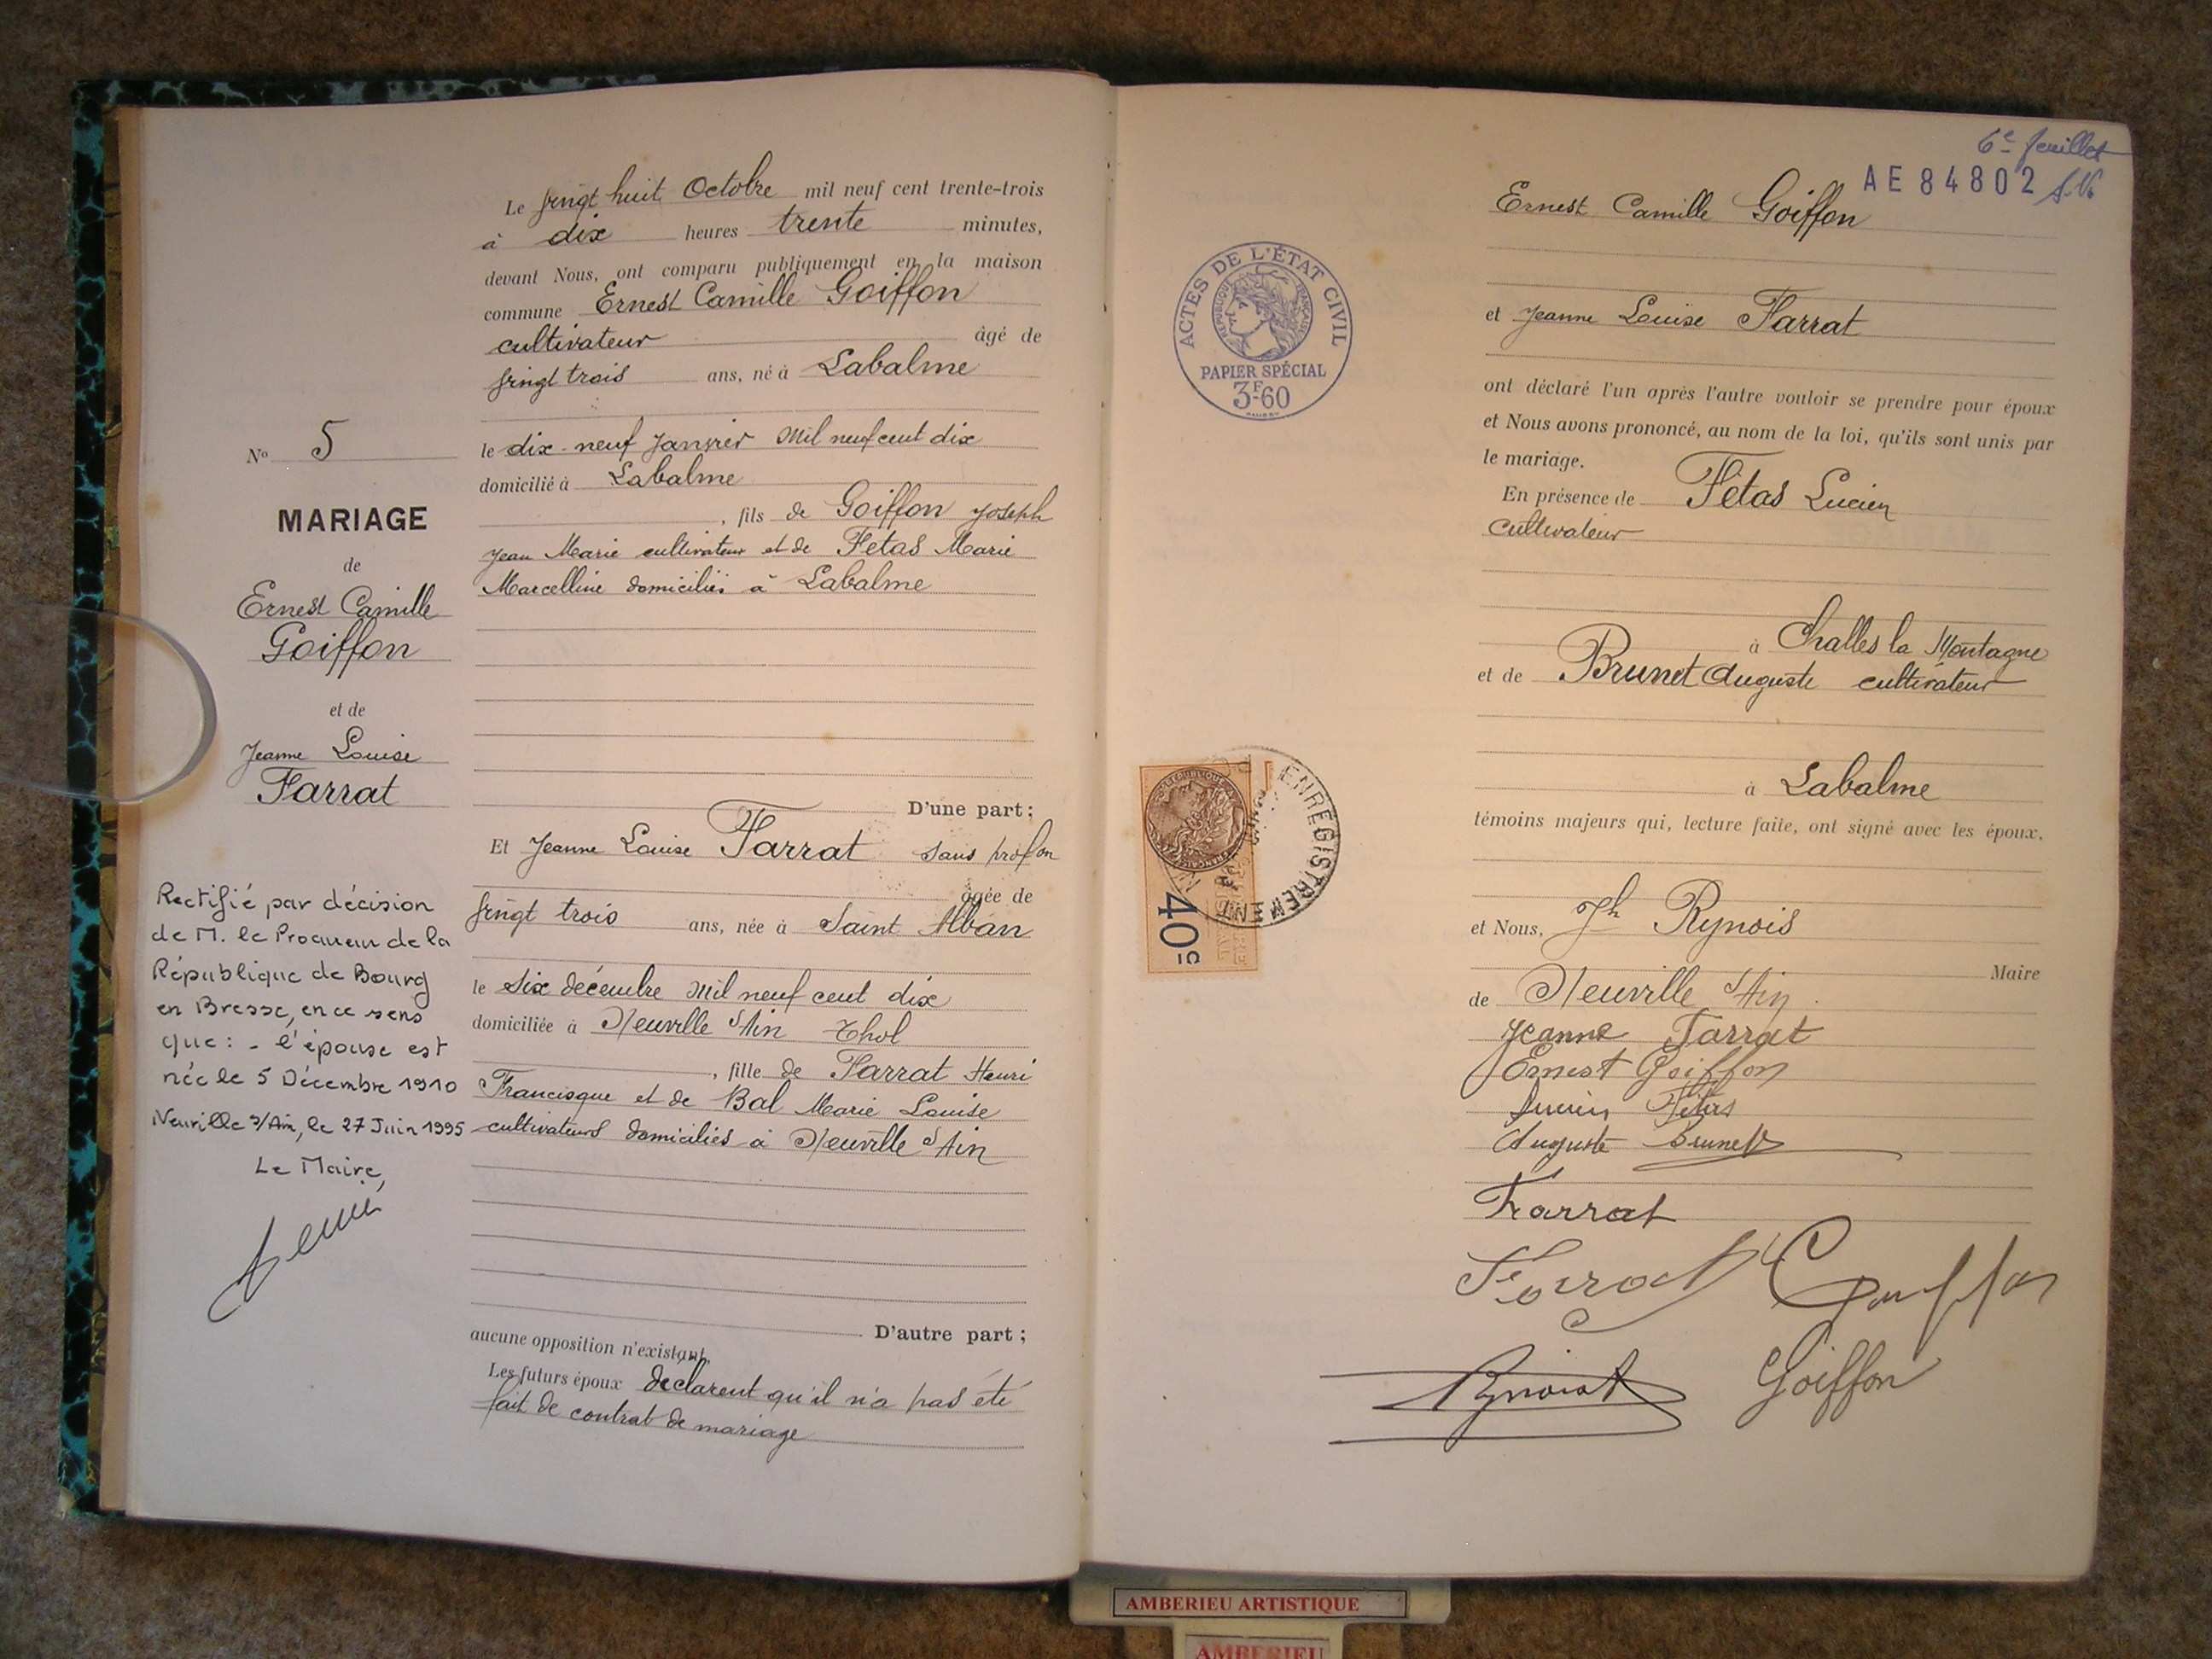 Le vingt huit Octobre mil neuf cent trente-trois
à dix heures trente minutes,
devant Nous, ont comparu publiquement en la maison
commune Ernest Camille Goiffon
cultivateur âgé de
vingt trois ans, né à Labalme
le dix-neuf Janvier Mil neuf cent dix
domicilié à Labalme
, fils de Goiffon Joseph
Jean Marie cultivateur et de Fetas Marie
Marcelline domiciliés à Labalme
D'une part;
Et Jeanne Louise Farrat sans profon
âgée de
vingt trois ans, née à Saint Alban
le Six décembre Mil neuf cent dix
domiciliée à Neuville s/Ain Thol
, fille de Farrat Henri
Francisque et de Bal Marie Louise
cultivateurs domiciliés à Neuville s/Ain
D'autre part;
aucune opposition n'existant.
Les futurs époux déclarent qu'il n'a pas été
fait de contrat de mariage
No 5
MARIAGE
de
Ernest Camille
Goiffon
et de
Jeanne Louise
Farrat
Rectifié par décision
de M. le Procureur de la
République de Bourg
en Bresse, en ce sens
que: - l'épouse est
née le 5 Décembre 1910
Neuville s/Ain, le 27 Juin 1995
Le Maire,
6e feuillet
AE 84802
Ernest Camille Goiffon
et Jeanne Louise Farrat
ont déclaré l'un après l'autre vouloir se prendre pour époux
et Nous avons prononcé, au nom de la loi, qu'ils sont unis par
le mariage.
En présence de Fétas Lucien
cultivateur
à Challes la Montagne
et de Brunet Auguste cultivateur
à Labalme
témoins majeurs qui, lecture faite, ont signé avec les époux.
et Nous, Jh Rynois
Maire
de Neuville s/Ain
Jeanne Farrat
Ernest Goiffon
Lucien Fétas
Auguste Brunet
Farrat
Goiffon
ACTES DE L'ÉTAT CIVIL
RÉPUBLIQUE FRANÇAISE
PAPIER SPÉCIAL
3F60
ENREGISTREMENT
40c
AMBERIEU ARTISTIQUE
AMBERIEU